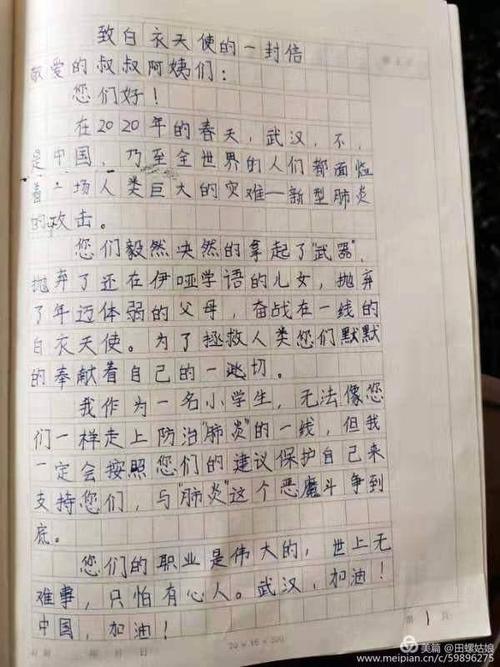 致白衣天使的一封信
敬爱的叔叔阿姨们：
您们好！
在2020年的春天，武汉，不，
是中国，乃至全世界的人们都面临
着一场人类巨大的灾难—新型肺炎
的攻击。
您们毅然决然的拿起了"武器"，
抛弃了还在伊哑学语的儿女，抛弃
了年迈体弱的父母，奋战在一线的
白衣天使。为了拯救人类您们默默
的奉献着自己的一切。
我作为一名小学生，无法像您
们一样走上防治"肺炎"的一线，但我
一定会按照您们的建议保护自己来
支持您们，与"肺炎"这个恶魔斗争到
底。
您们的职业是伟大的，世上无
难事，只怕有心人。武汉，加油！
中国，加油！
第 1 页
20×15=300
美篇 @田螺姑娘
www.meipian.cn/c/59896275